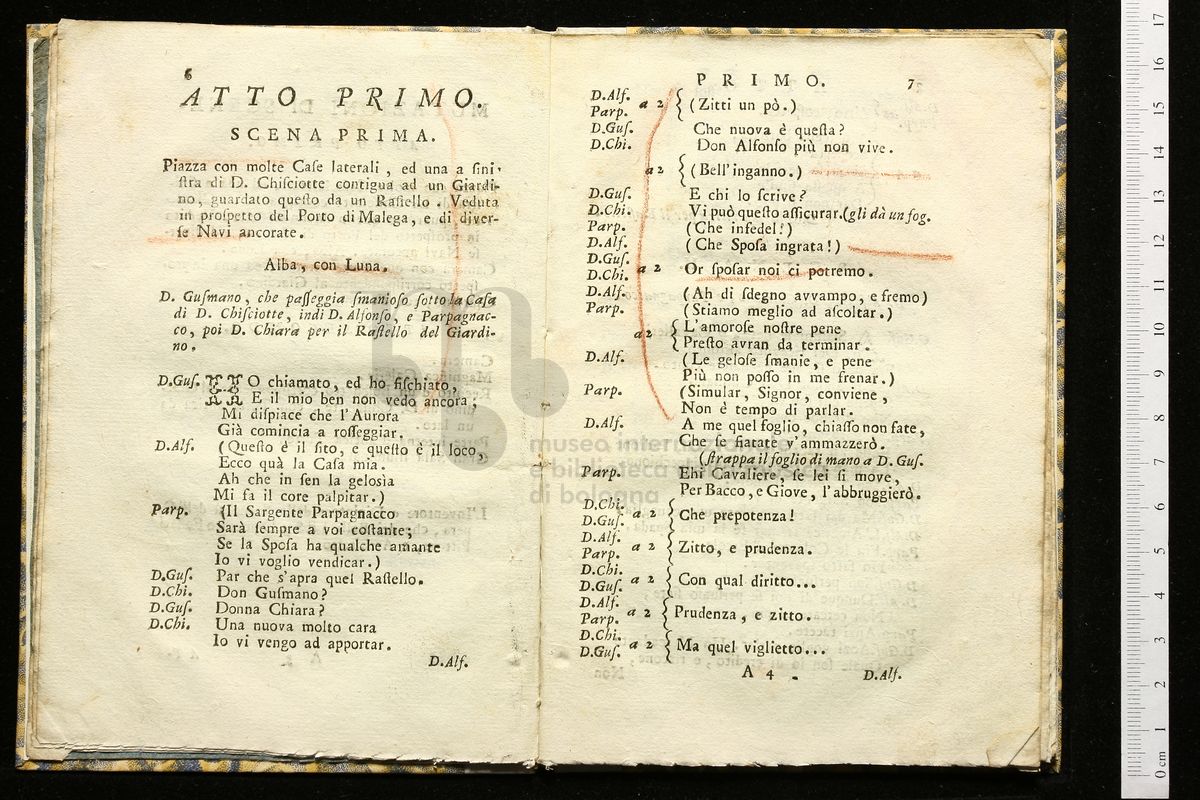 6
ATTO PRIMO.
SCENA PRIMA.
Piazza con molte Caſe laterali , ed una a ſini-
ſtra di D. Chiſciotte contigua ad un Giardi-
no, guardato queſto da un Raſtello . Veduta
in proſpetto del Porto di Malega, e di diver-
ſe Navi ancorate.
Alba, con Luna.
D. Guſmano, che paſſeggia ſmanioſo ſotto la Caſa
di D. Chiſciotte, indi D. Alfonſo, e Parpagnac-
co, poi D. Chiara per il Raſtello del Giardi-
no.
D.Guſ. HO chiamato, ed ho fiſchiato,
E il mio ben non vedo ancora;
Mi diſpiace che l'Aurora
Già comincia a roſſeggiar.
D.Alf. (Queſto è il ſito, e queſto è il loco,
Ecco quà la Caſa mia.
Ah che in ſen la gelosìa
Mi fa il core palpitar.)
Parp. (Il Sargente Parpagnacco
Sarà ſempre a voi coſtante;
Se la Spoſa ha qualche amante
Io vi voglio vendicar.)
D.Guſ. Par che s'apra quel Raſtello.
D.Chi. Don Guſmano?
D.Guſ. Donna Chiara?
D.Chi. Una nuova molto cara
Io vi vengo ad apportar.
D.Alf.
PRIMO. 7
D.Alf.
Parp. a 2 { (Zitti un pò.)
D.Guſ. Che nuova è queſta?
D.Chi. Don Alfonſo più non vive.
a 2 { (Bell'inganno.)
D.Guſ. E chi lo ſcrive?
D.Chi. Vi può queſto aſſicurar.(gli dà un fog.
Parp. (Che infedel!)
D.Alf. (Che Spoſa ingrata!)
D.Guſ.
D.Chi. a 2 Or ſpoſar noi ci potremo.
D.Alf. (Ah di ſdegno avvampo, e fremo)
Parp. (Stiamo meglio ad aſcoltar.)
a 2 { L'amoroſe noſtre pene
Preſto avran da terminar.
D.Alf. (Le geloſe ſmanie, e pene
Più non poſſo in me frenar.)
Parp. (Simular, Signor, conviene,
Non è tempo di parlar.
D.Alf. A me quel foglio, chiaſſo non fate,
Che ſe fiatate v'ammazzerò.
(ſtrappa il foglio di mano a D. Guſ.
Parp. Ehi Cavaliere, ſe lei ſi move,
Per Bacco, e Giove, l'abbruggierò.
D.Chi.
D.Guſ. a 2 { Che prepotenza!
D.Alf.
Parp. a 2 { Zitto, e prudenza.
D.Chi.
D.Guſ. a 2 { Con qual diritto...
D.Alf.
Parp. a 2 { Prudenza, e zitto.
D.Chi.
D.Guſ. a 2 { Ma quel viglietto...
A 4 D.Alf.
museo internazionale
e biblioteca della musica
di bologna
0 cm 1 2 3 4 5 6 7 8 9 10 11 12 13 14 15 16 17